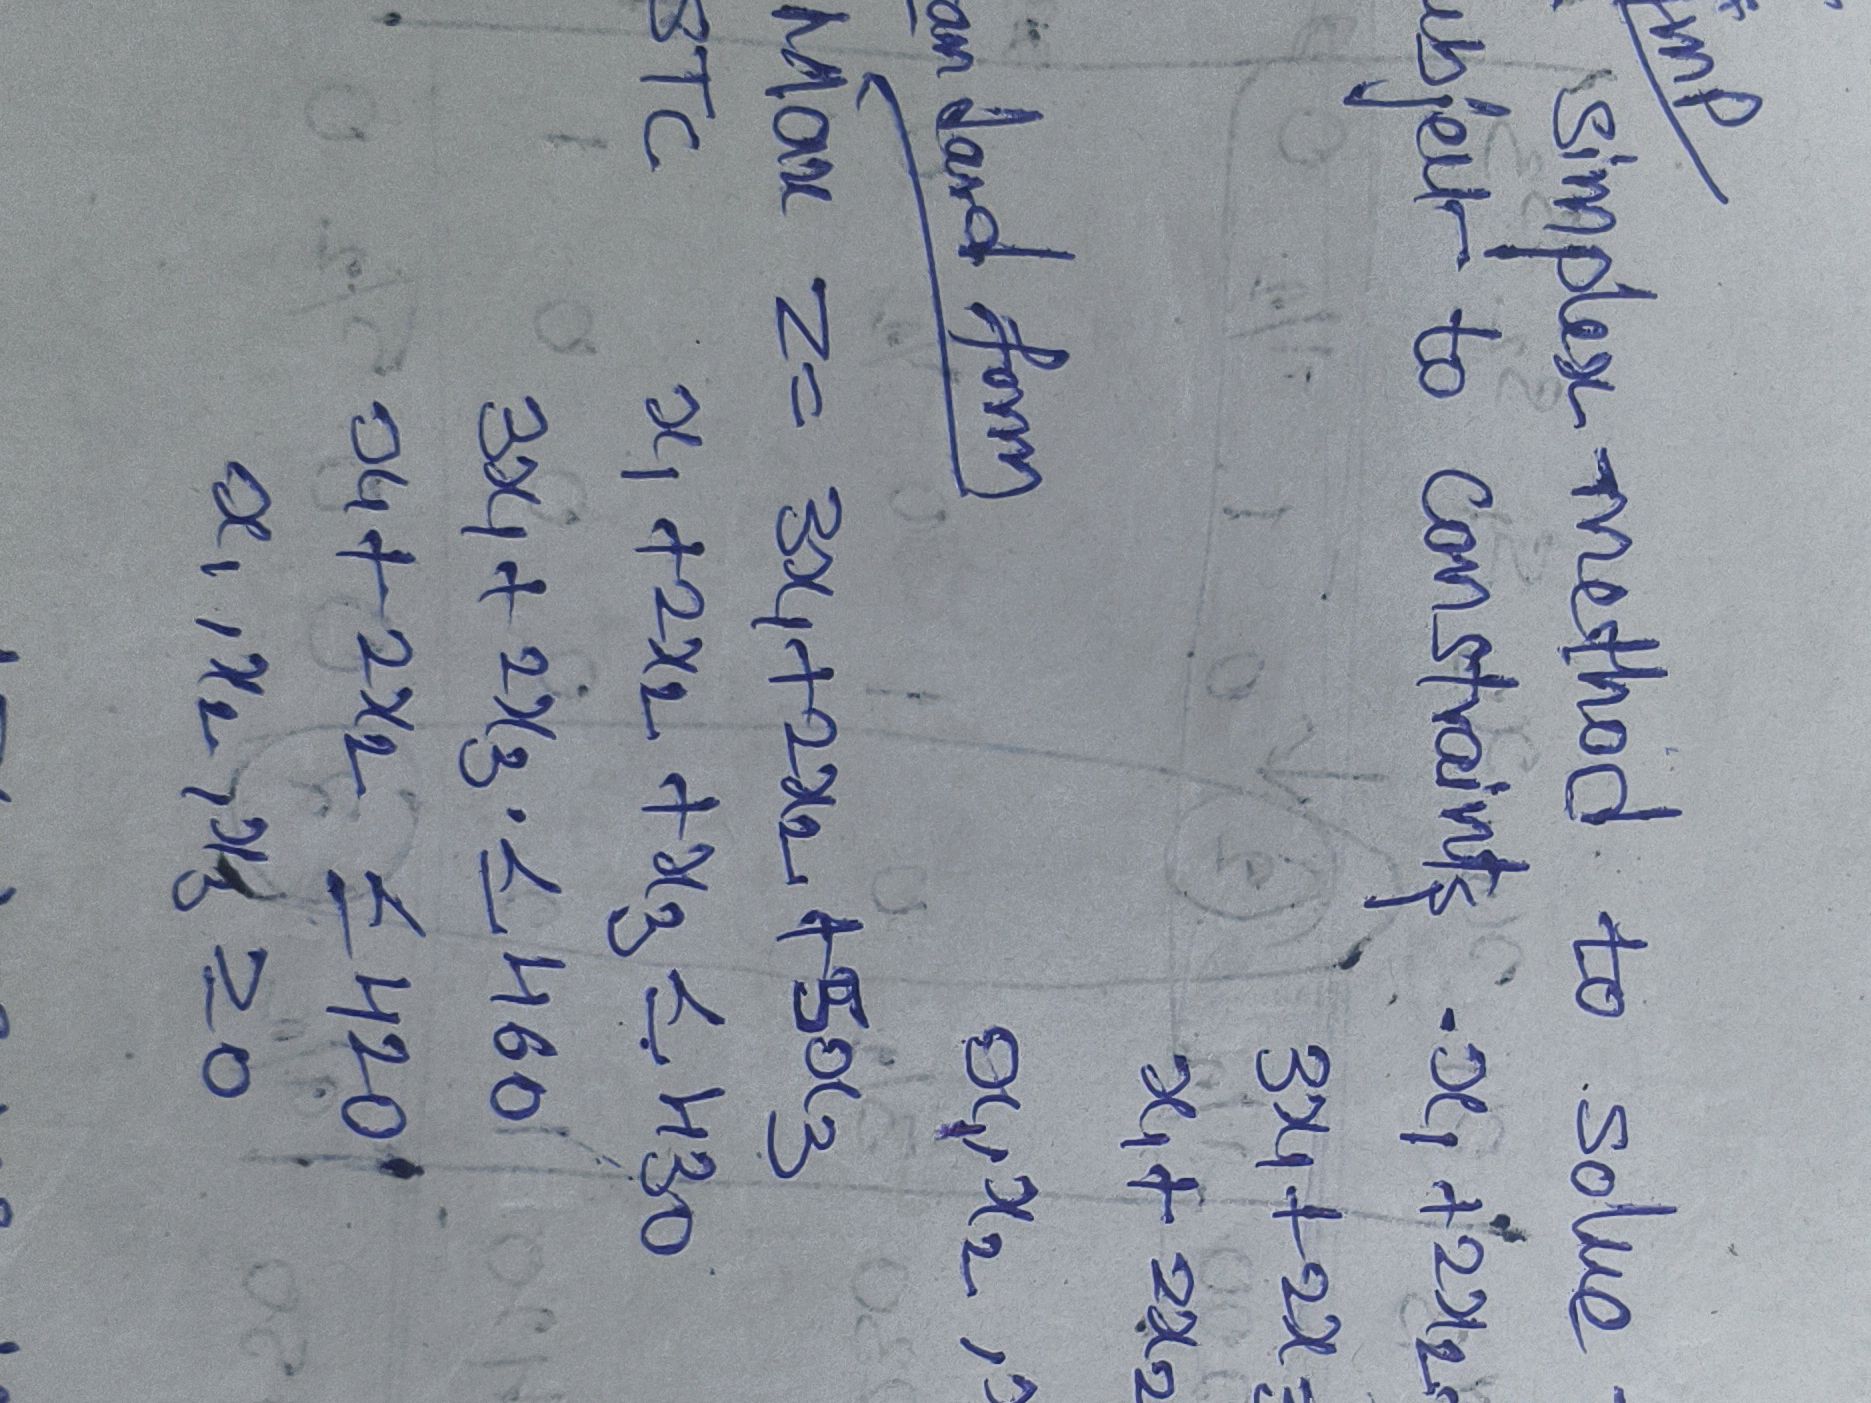 Imp
simplex method to solve
subject to constraints - x₁ + 2x₂
3x₁ + 2x₃
x₁ + 2x₂
x₁, x₂,
standard form
Max Z = 3x₁ + 2x₂ + 5x₃
STC x₁ + 2x₂ + x₃ ≤ 430
3x₁ + 2x₃ ≤ 460
x₁ + 2x₂ ≤ 420
x₁, x₂, x₃ ≥ 0